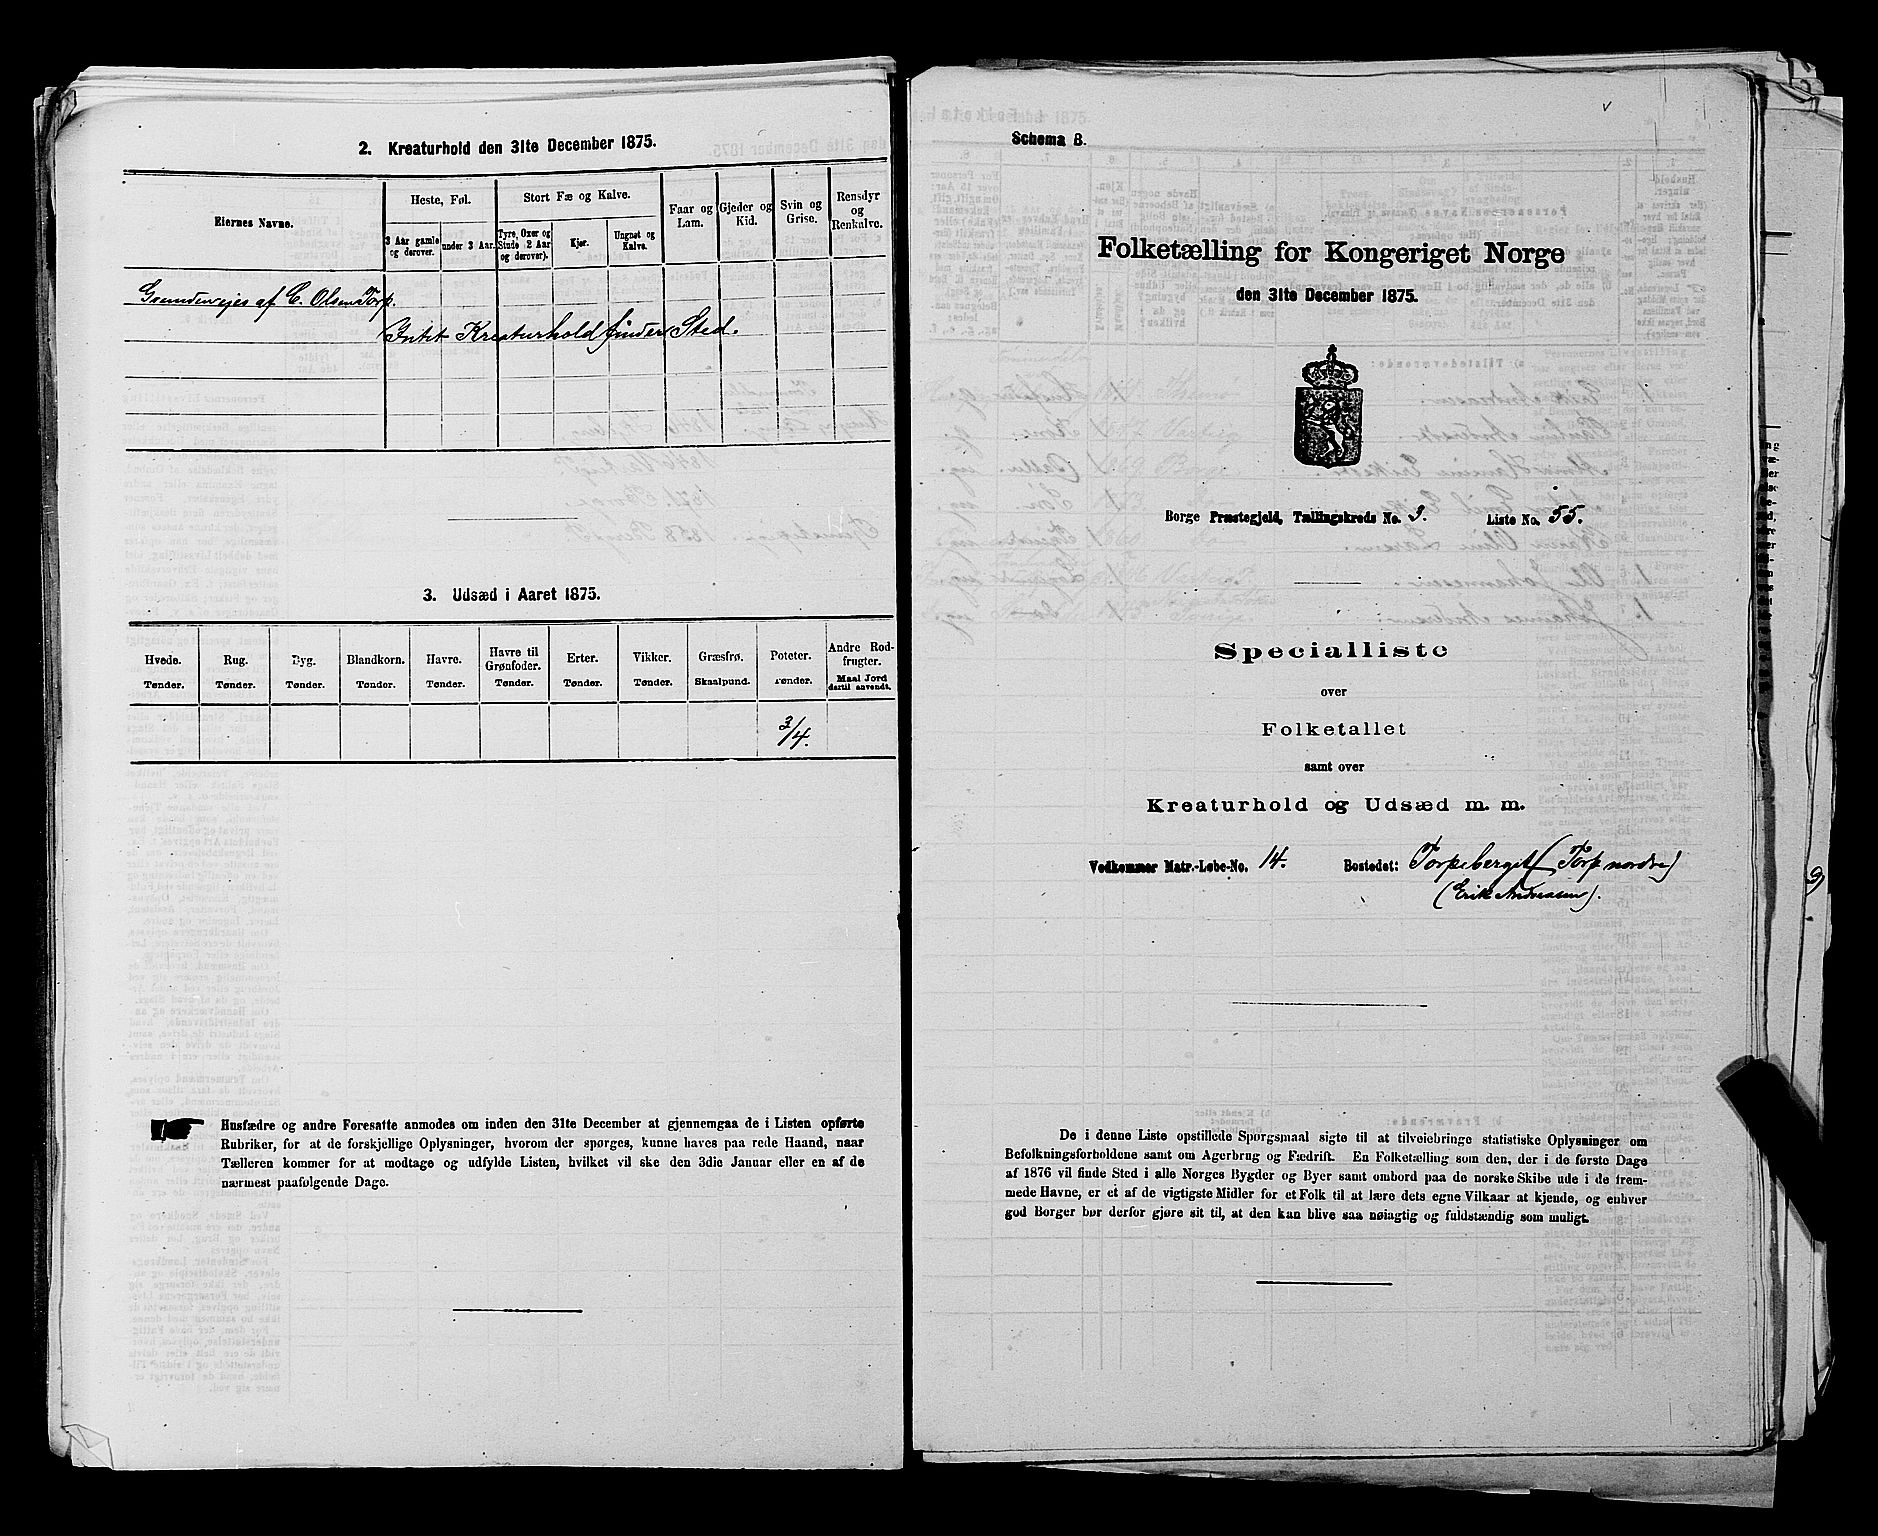 2. Kreaturhold den 31te December 1875.
Eiernes Navne.
Heste, Føl.
Stort Fæ og Kalve.
Faar og Lam.
Gjeder og Kid.
Svin og Grise.
Rensdyr og Renkalve.
3 Aar gamle og derover.
under 3 Aar.
Tyre, Oxer og Stude 2 Aar og derover).
Kjør.
Ungnøt og Kalve.
Grunden ejes af C. Olsen Torp.
Intet Kreaturhold finder Sted.
3. Udsæd i Aaret 1875.
Hvede. Rug. Byg. Blandkorn. Havre. Havre til Grønfoder. Erter. Vikker. Græsfrø. Poteter. Andre Rodfrugter.
Tønder. Tønder. Tønder. Tønder. Tønder. Tønder. Tønder. Tønder. Skaalpund. Tønder. Maal Jord dertil anvendt.
3/4.
Husfædre og andre Foresatte anmodes om inden den 31te December at gjennemgaa de i Listen opførte
Rubriker, for at de forskjellige Oplysninger, hvorom der spørges, kunne haves paa rede Haand, naar
Tælleren kommer for at modtage og udfylde Listen, hvilket vil ske den 3die Januar eller en af de
nærmest paafølgende Dage.
Schema B.
Folketælling for Kongeriget Norge
den 31te December 1875.
Borge Præstegjeld, Tællingskreds No. 3. Liste No. 55.
Specialliste
over
Folketallet
samt over
Kreaturhold og Udsæd m. m.
Vedkommer Matr.-Løbe-No. 14. Bostedet: Torpeberget (Torp nordre)
(Erik Andreasen).
De i denne Liste opstillede Spørgsmaal sigte til at tilveiebringe statistiske Oplysninger om
Befolkningsforholdene samt om Agerbrug og Fædrift. En Folketælling som den, der i de første Dage
af 1876 vil finde Sted i alle Norges Bygder og Byer samt ombord paa de norske Skibe ude i de frem-
mede Havne, er et af de vigtigste Midler for et Folk til at lære dets egne Vilkaar at kjende, og enhver
god Borger bør derfor gjøre sit til, at den kan blive saa nøiagtig og fuldstændig som muligt.